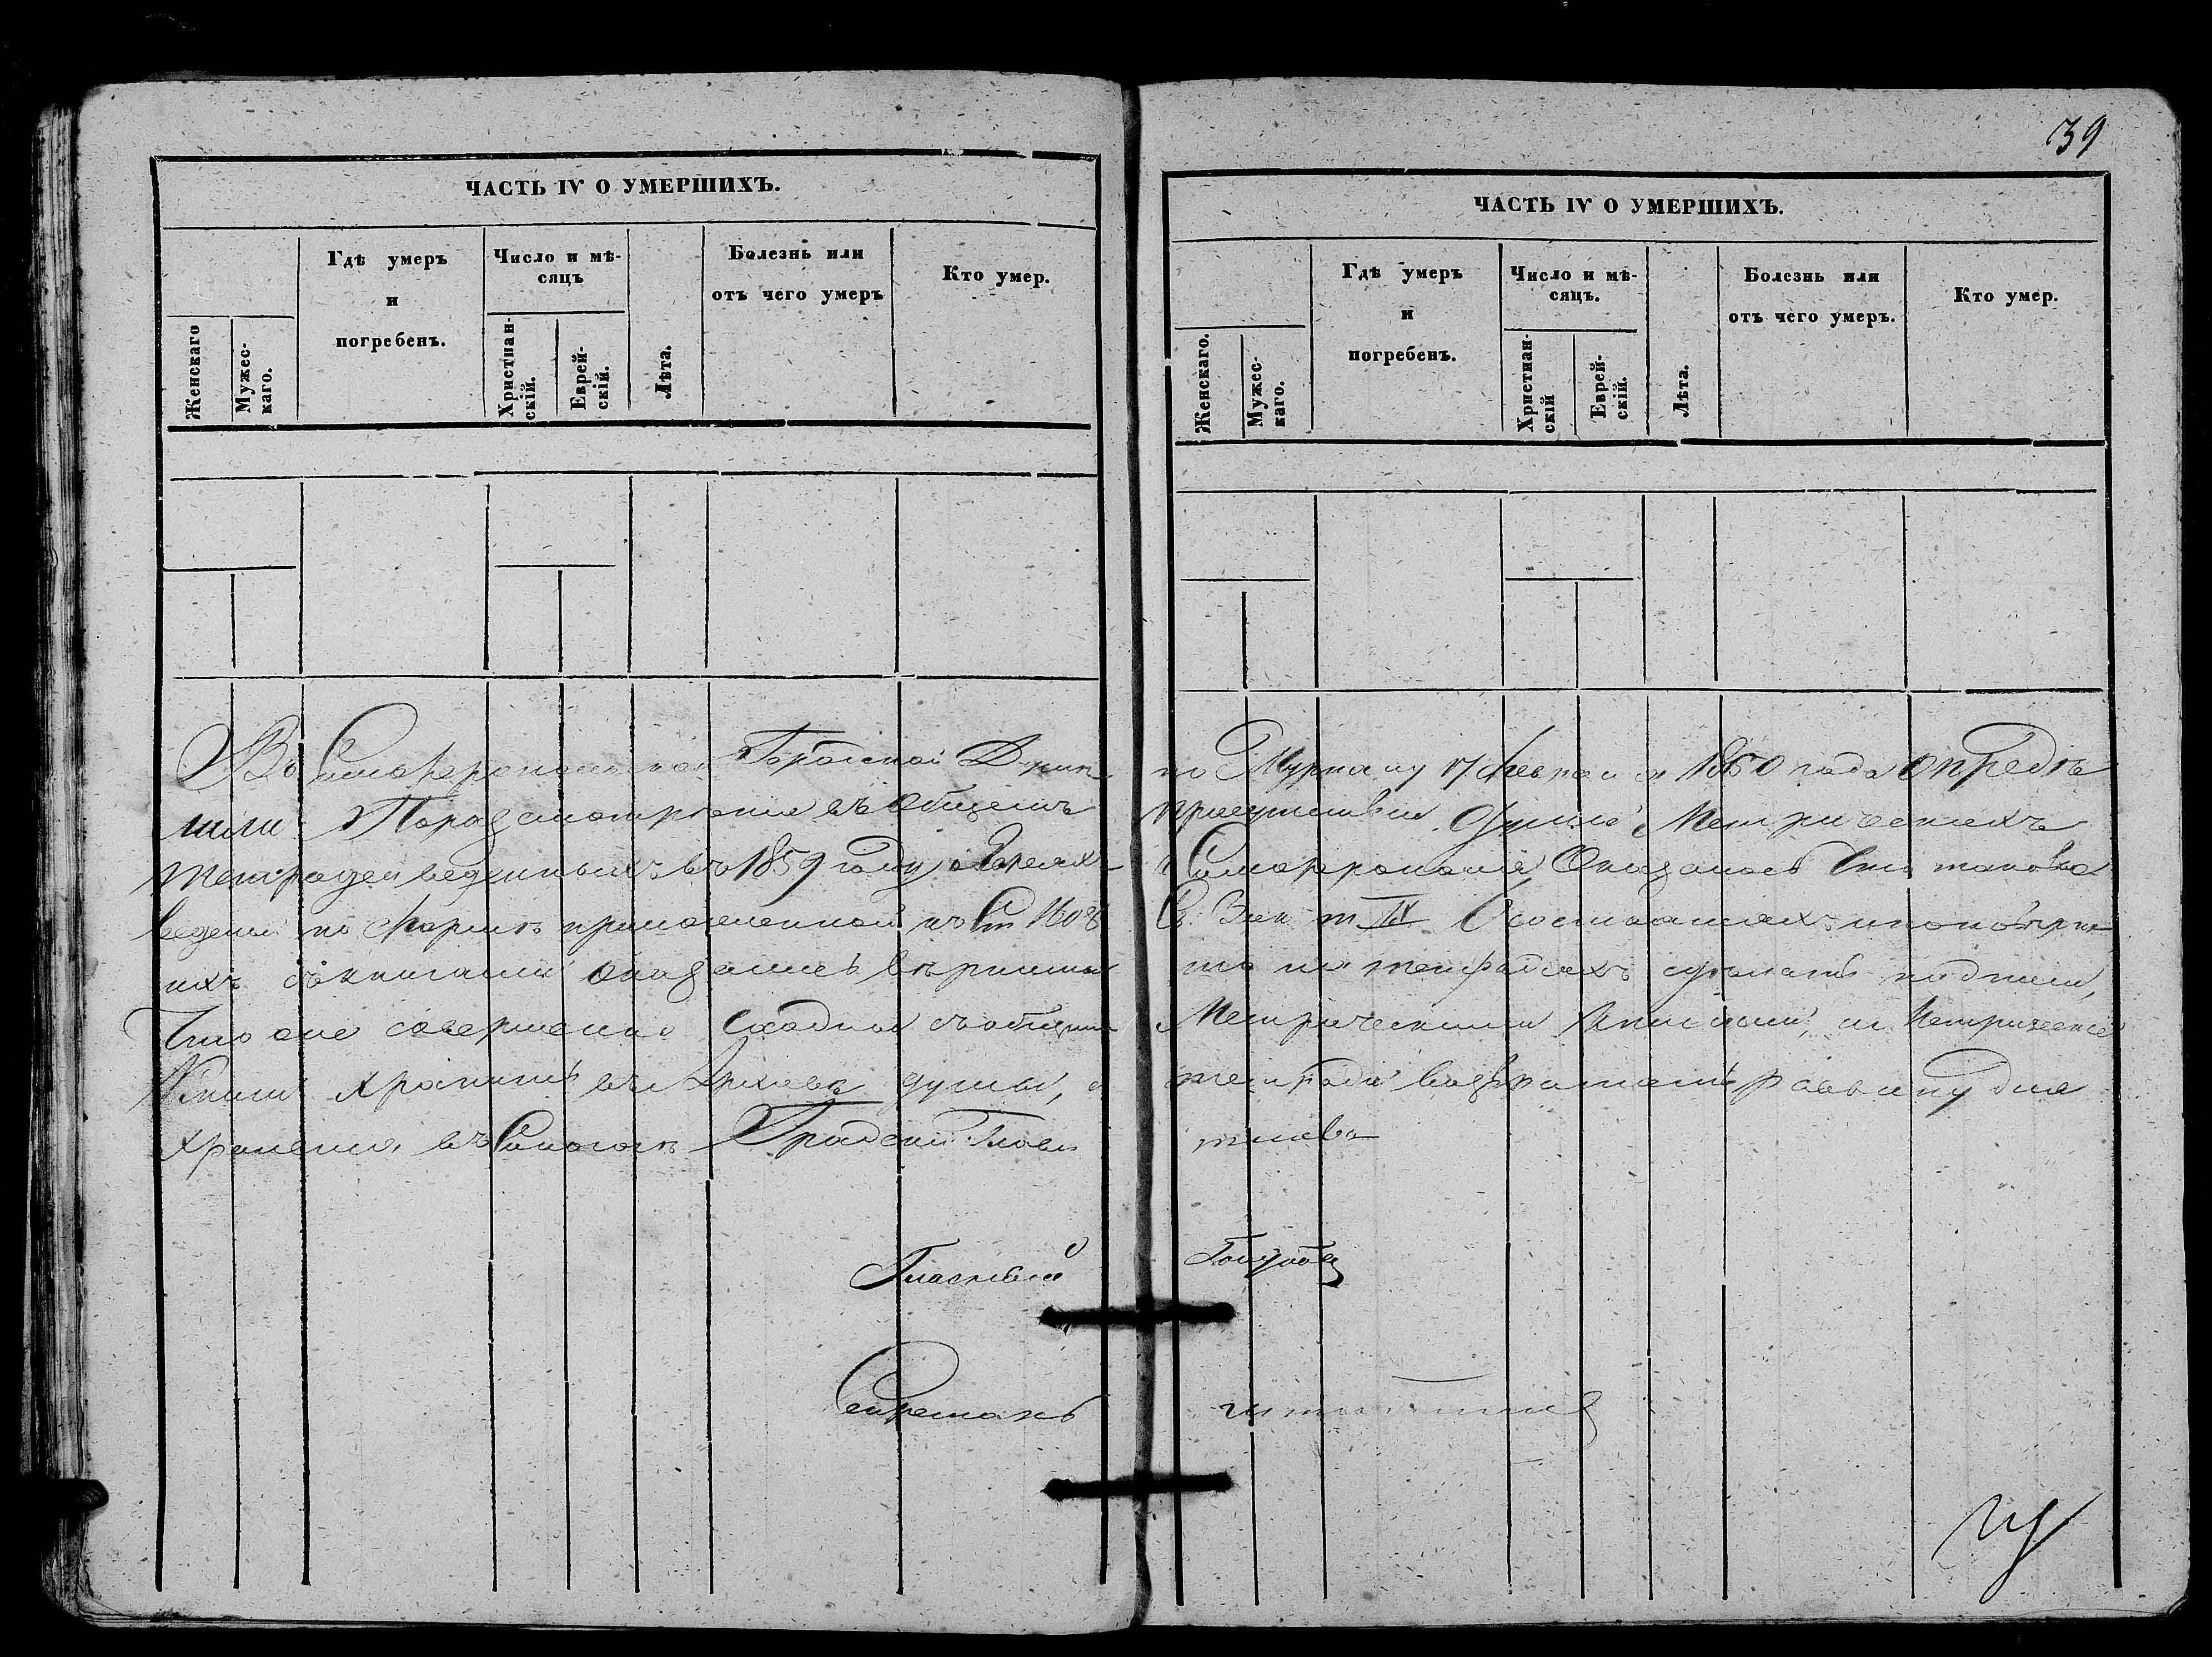 39
ЧАСТЬ IV О УМЕРШИХЪ.
Женскаго
Мужес-
каго.
Гдѣ умеръ
и
погребенъ.
Число и мѣ-
сяцъ
Христиан-
скій.
Еврей-
скій.
Лѣта.
Болезнь или
отъ чего умеръ
Кто умер.
ЧАСТЬ IV О УМЕРШИХЪ.
Женскаго.
Мужес-
каго.
Гдѣ умеръ
и
погребенъ.
Число и мѣ-
сяцъ.
Христиан-
скій
Еврей-
скій.
Лѣта.
Болезнь или
отъ чего умеръ.
Кто умер.
Въ Симферопольской Городской Думѣ по Журналу 17 Февраля 1860 года Опредѣ
лили По разсмотрѣнию въ Общемъ присутствии Думы Метрическихъ
тетрадей веденныхъ въ 1859 году о Евреяхъ Симферополя Оказалось Что таковые
ведены по Формѣ приложенной къ Ст 1608 Св. Зак т IX О состоянияхъ
ихъ съ книгами на тетрадяхъ сделать надписи,
Что оне совершенно сходны съ общими Метрическими Книгами, и Метрические
Книги хранить въ Архивѣ думы, а тетради возвратить раввину для
хранения въ Синагогѣ Градской Глава
Гласный Голубовъ
Секретарь